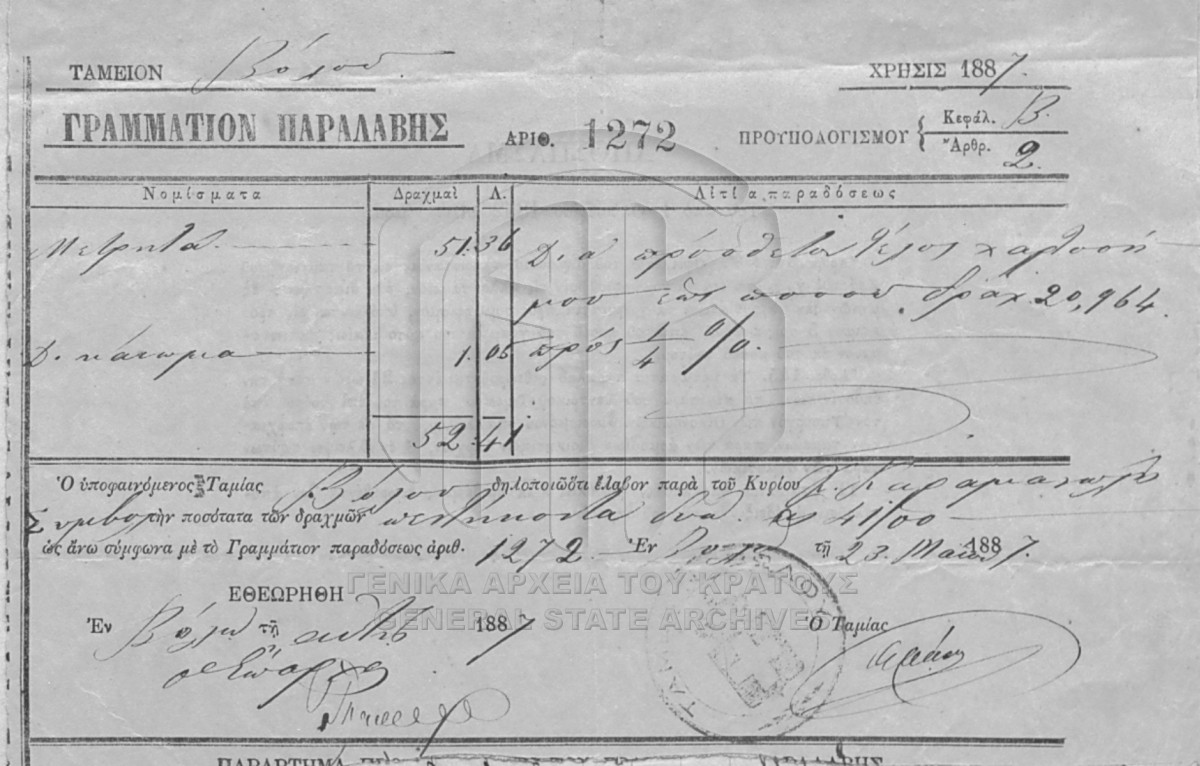 ΤΑΜΕΙΟΝ Βόλου ΧΡΗΣΙΣ 1887.
ΓΡΑΜΜΑΤΙΟΝ ΠΑΡΑΛΑΒΗΣ ΑΡΙΘ. 1272 ΠΡΟΫΠΟΛΟΓΙΣΜΟΥ { Κεφάλ. Β.
Ἄρθρ. 2.
Νομίσματα Δραχμαὶ Λ. Αἰτία παραδόσεως
Μετρητά 51.36 Διὰ πρόσθετον τέλος χαρτοσή
μου ποσοῦ δραχ 20,964.
1.05 πρὸς 1/4 %.
52.41
Ὁ ὑποφαινόμενος Ταμίας Βόλου δηλοποιῶ ὅτι ἔλαβον παρὰ τοῦ Κυρίου
τὴν ποσότατα τῶν δραχμῶν πεντήκοντα δύο 41/00
ὡς ἄνω σύμφωνα μὲ τὸ Γραμμάτιον παραδόσεως ἀριθ. 1272 Ἐν τῇ 23 1887.
ΓΕΝΙΚΑ ΑΡΧΕΙΑ ΤΟΥ ΚΡΑΤΟΥΣ
GENERAL STATE ARCHIVES
ΕΘΕΩΡΗΘΗ
Ἐν Βόλῳ τῇ 1887 Ὁ Ταμίας
ΠΑΡΑΡΤΗΜΑ